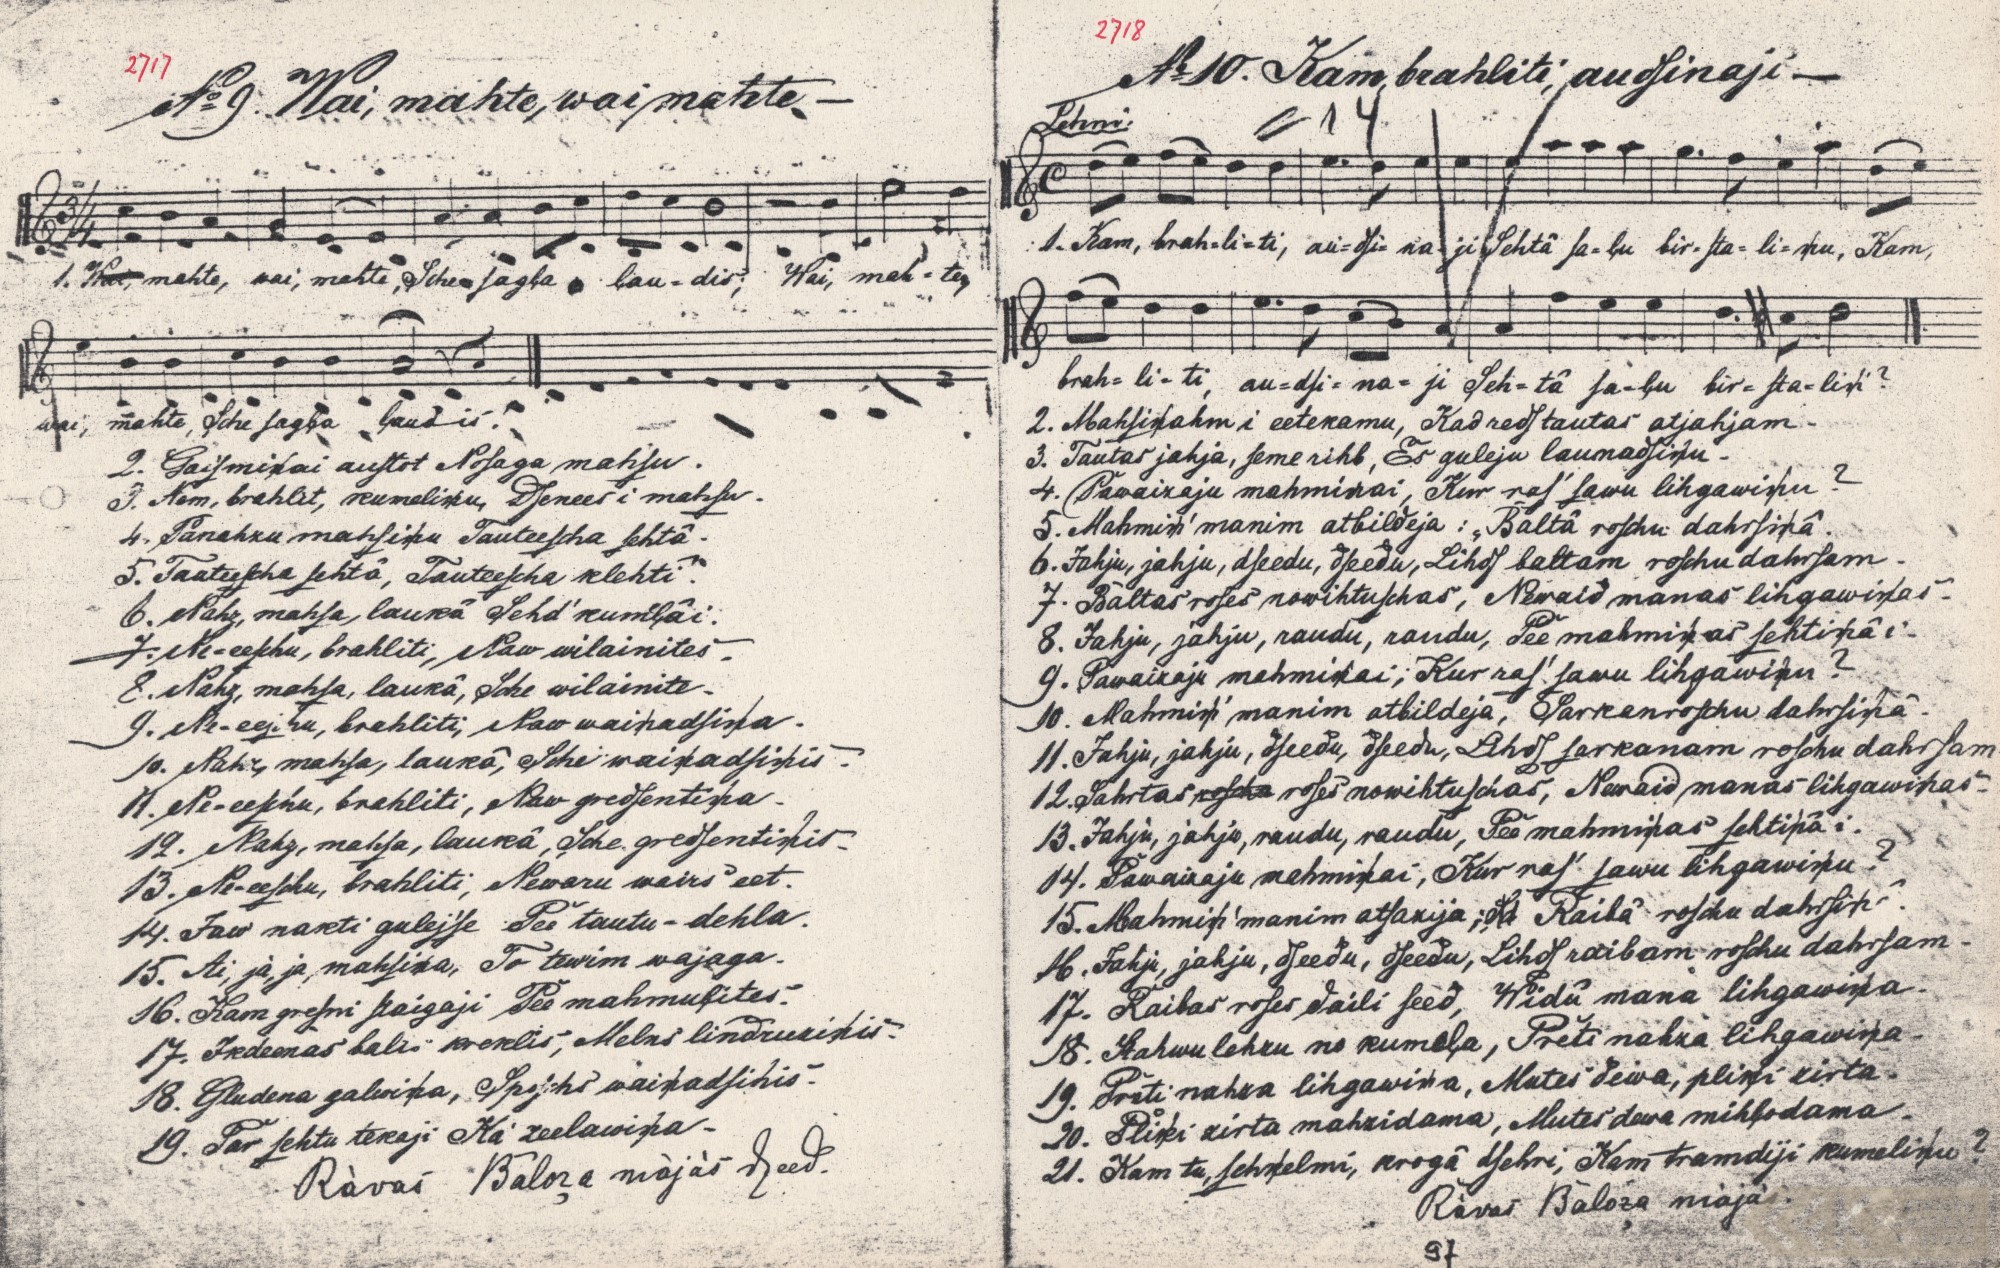 2717
№ 9. Wai, mahte, wai, mahte –
1. Wai, mahte, wai, mahte, Sche sagļa ļau-dis; Wai, mah-te,
wai, mahte, Sche sagļa ļaudis!
2. Gaismiņai austot Nosaga mahsu.
3. Nem, brahlit, kumeliņu, Dsenees i mahsu.
4. Panahzu mahsiņu Tauteescha sehtâ.
5. Tauteescha sehtâ, Tauteescha klehti.
6. Nahz, mahsa, laukâ Sehd' kumļâi.
7. Ne-eeschu, brahliti, Naw wilainites.
8. Nahz, mahsa, laukâ, Sche wilainite.
9. Ne-eeschu, brahliti, Naw waiņadsiņa.
10. Nahz, mahsa, laukâ, Sche waiņadsiņis.
11. Ne-eeschu, brahliti, Naw gredsentiņa.
12. Nahz, mahsa, laukâ, Sche gredsentiņis.
13. Ne-eeschu, brahliti, Newaru wairs eet.
14. Jaw nakti gulejse Pee tautu-dehla.
15. Ai, ja, ja, mahsiņa, To tewim wajaga.
16. Kam gresni staigaji Pee mahmuļites.
17. Ikdeenas balts kreklis, Melns lindruziņis.
18. Gludena galwiņa, Sposchs waiņadsiņis.
19. Par sehtu tekaji Kâ zeelawiņa.
Rāvas Baloža mājās dzied.
2718
№ 10. Kam, brahliti, audsinaji –
Lehni.
14
1. Kam, brah-li-ti, au-dsi-na-ji Sehtâ sa-ļu bir-sta-li-ņu, Kam,
brah-li-ti, au-dsi-na-ji Seh-tâ sa-ļu bir-sta-liņ'?
2. Mahsiņahm i eetekamu, Kad reds tautas atjahjam.
3. Tautas jahja, seme rihb, Es guleju launadsiņu.
4. Pawaizaju mahmiņai, Kur ras' sawu lihgawiņu?
5. Mahmiņ' manim atbildeja: „Baltâ roschu dahrsiņâ.
6. Jahju, jahju, dseedu, dseedu, Lihds baltam roschu dahrsam.
7. Baltas roses nowihtuschas, Newaid manas lihgawiņas.
8. Jahju, jahju, raudu, raudu, Pee mahmiņas sehtiņâi.
9. Pawaizaju mahmiņai, Kur ras' sawu lihgawiņu?
10. Mahmiņ' manim atbildeja, Sarkan roschu dahrsiņâ.
11. Jahju, jahju, dseedu, dseedu, Lihds sarkanam roschu dahrsam
12. Sahrtas roses nowihtuschas, Newaid manas lihgawiņas.
13. Jahju, jahju, raudu, raudu, Pee mahmiņas sehtiņâi.
14. Pawaizaju mahmiņai, Kur ras' sawu lihgawiņu?
15. Mahmiņ' manim atsazija; Raibâ roschu dahrsiņ'.
16. Jahju, jahju, dseedu, dseedu, Lihds raibam roschu dahrsam.
17. Raibas roses daili seed, Widû mana lihgawiņa.
18. Stahwu lehzu no kumeļa, Preti nahza lihgawiņa.
19. Preti nahza lihgawiņa, Mutes dewa, pliķi zirta.
20. Pliķi zirta mahzidama, Mutes dewa mihļodama.
21. Kam tu, schķelmi, krogâ dsehri, Kam tramdiji kumeliņu?
Rāvas Baloža mājā
97